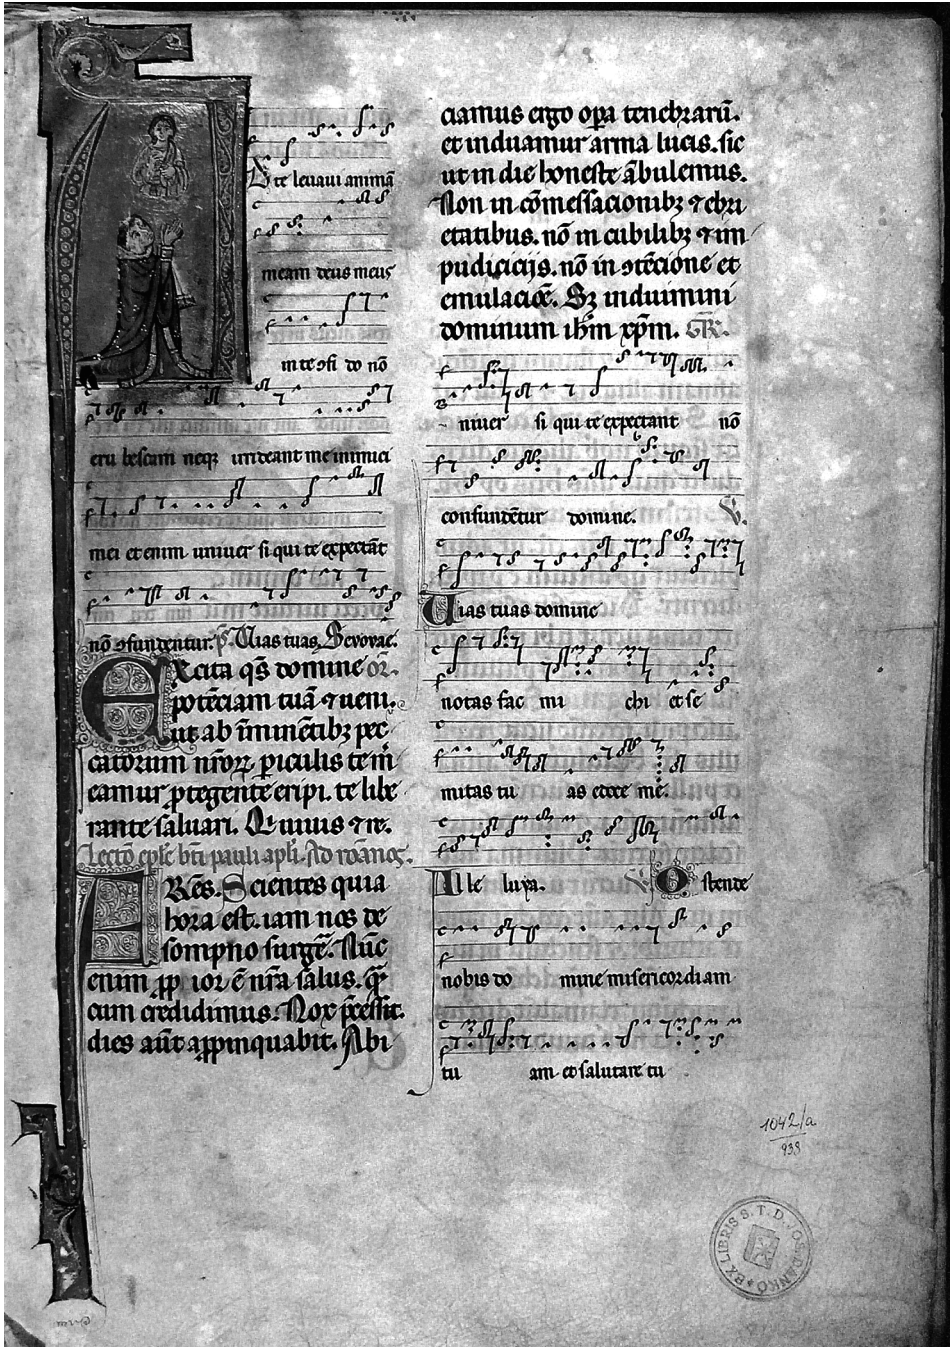 D te levavi animā
meam deus meus
in te ɔfi do nō
eru bescam neqꝫ irrideant me inimici
mei et enim univer si qui te expectāt
nō ɔfundentur. p̄. Uias tuas. Sevovae.
Excita qs̄ domine or̄.
potēciam tuā ⁊ veni.
ut ab īminētibꝫ pec
catorum nr̄oꝝ ꝑiculis te m̄
eamur ꝓtegente eripi. te libe
rante salvari. Qui vivis ⁊ re.
Lectō epl̄e bt̄i pauli apl̄i. Ad romānos.
FRēs. Scientes quia
hora est. iam nos de
sompno surgē. Nūc
enim ꝓp ior ē nr̄a salus. qm̄
cum credidimus. Nox p̄cessit.
dies aūt apꝓpinquabit. Abi
ciamus ergo oꝑa tenebrarū.
et induamur arma lucis. sic
ut in die honeste ābulemus.
Non in cōmessacionibꝫ ⁊ ebri
etatibus. nō in cubilibꝫ ⁊ im
pudiciciis. nō in ɔtēcione et
emulaciōe. Sꝫ induimini
dominum ih̄m xp̄m. GR̄.
niver si qui te expectant nō
confundētur domine. V.
Uias tuas domine
notas fac mi chi et se
mitas tu as edoce me.
Alle luya. V. Ostende
nobis do mine misericordiam
tu am et salutare tu
1042/a
938
EX LIBRIS S. T. D. JOS. DANKÓ